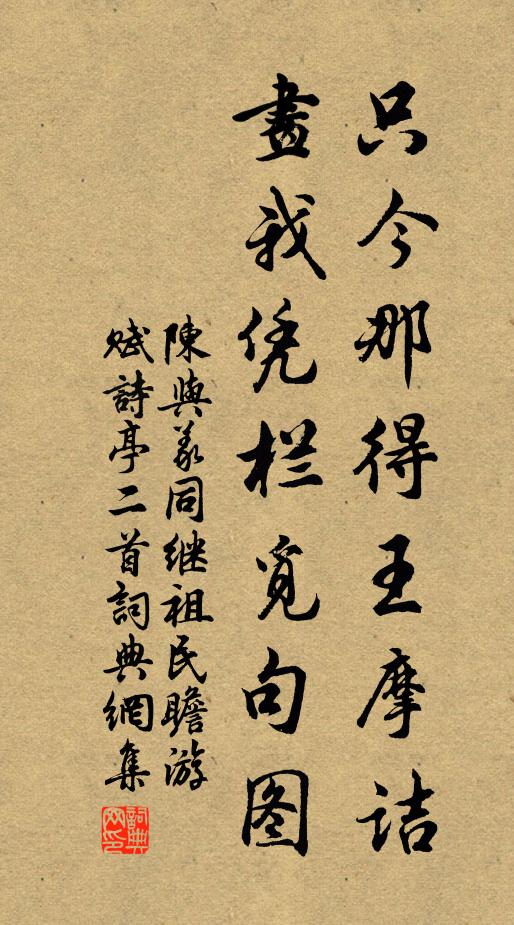 只今那得王摩诘
畫我凭栏觅句图
陳與義同继祖民瞻游
赋詩亭二首詞典網集
詞典
网印